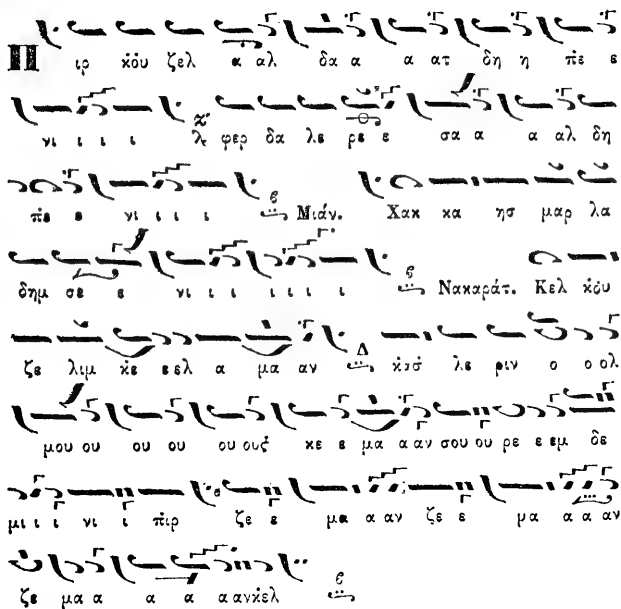 Π ιρ κὸυ ζελ α αλ δα α α ατ δη η πὲ ε
νι ι ι ι λ φερ δα λε ρε ε σα α α αλ δη
πὲ ε νι ι ι ι Μιάν. Χακ κα ησ μαρ λα
δημ σε ε νι ι ι ι ι ι ι Νακαράτ. Κελ κὸυ
ζε λιμ κὲ ε ελ α μα αν Δ λε ριν ο ο ολ
μου ου ου ου ου ουξ κε ε μα α αν σου ου ρε ε εμ δε
μι ι ι νι ι πὶρ ζε ε μα α αν ζε ε μα α α αν
ζε μα α α α α ανκὲλ